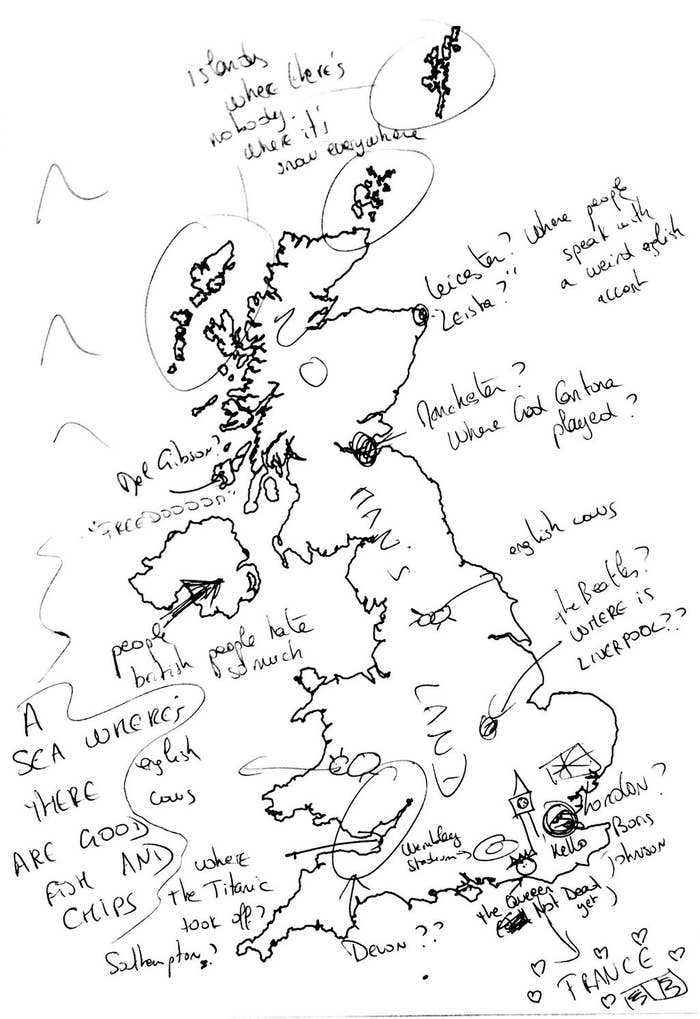 islands
where there's
nobody.
where it's
snow everywhere
Leicester? where people
"Leista?"
speak with
a weird english
accent
Manchester?
where God Cantona
played?
Mel Gibson?
"FREEDOOOOM"
english cows
the Beatles?
WHERE IS
LIVERPOOL??
people
british people hate
so much
A
SEA WHERE'S
THERE
ARE GOOD
FISH AND
CHIPS
english
cows
where
the Titanic
took off?
Southampton?
Devon??
Wembley
Stadium
London?
Boris
Johnson
Hello
the Queen
(Not Dead
yet)
FRANCE